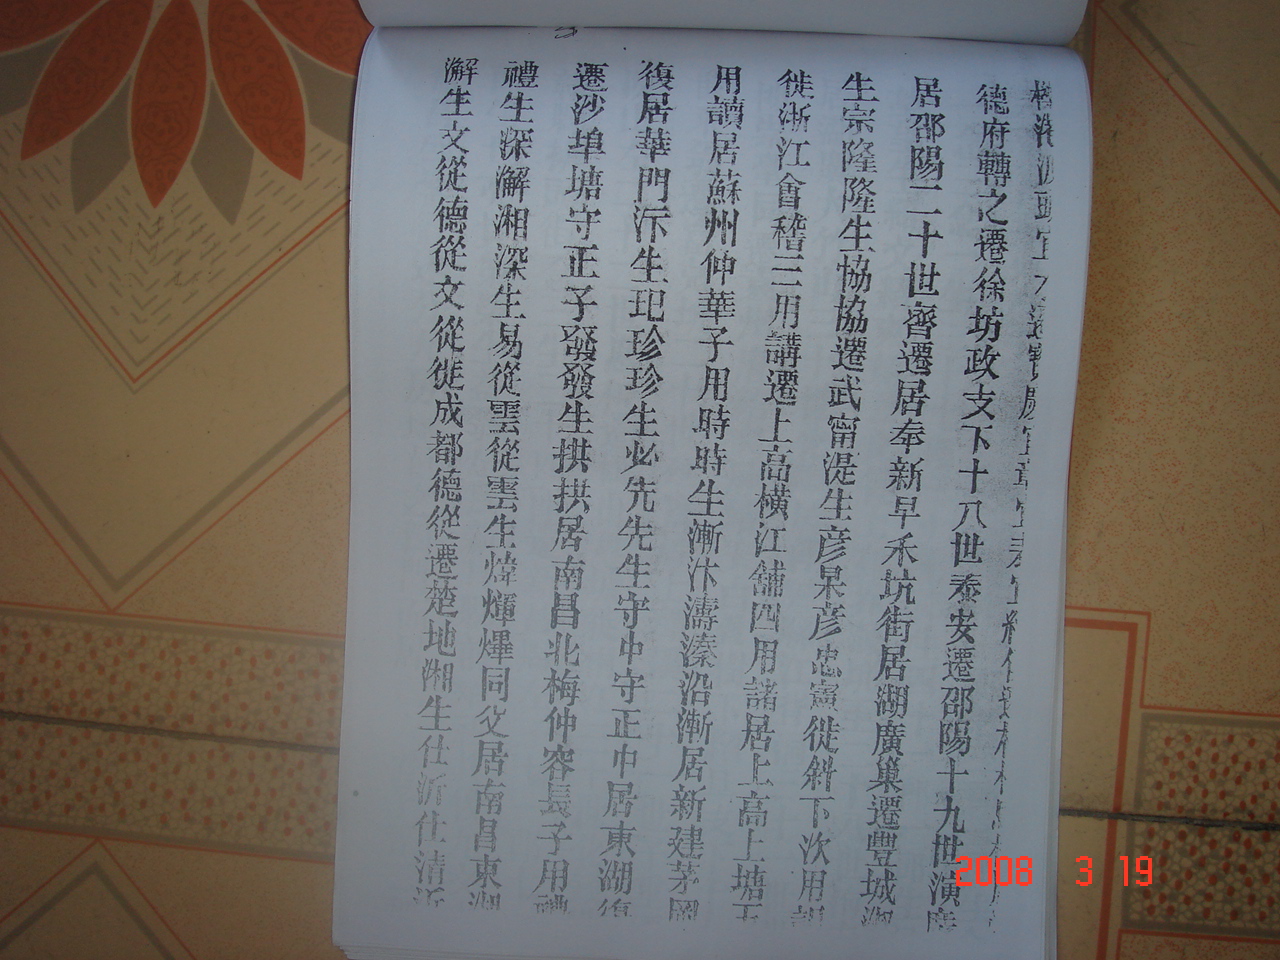 德府轉之遷徐坊政支下十八世泰安遷邵陽十九世演
居邵陽二十世齊遷居奉新早禾坑街居湖廣巢遷豐城
生宗隆隆生協協遷武甯湜生彥杲彥忠憲徙斜下次用
徙浙江會稽三用講遷上高橫江舖四用諸居上高上塘
用讀居蘇州仲華子用時時生漸汴濤溱沿漸居新建茅岡
復居華門泝生玘珍珍生必先先生守中守正中居東湖復
遷沙埠塘守正子發發生拱拱居南昌北梅仲容長子用禮
禮生深澥湘深生易從雲從雲生煒煇燁同父居南昌東湖
澥生文從德從文從徙成都德從遷楚地湘生仕沂仕清沂
2008 3 19